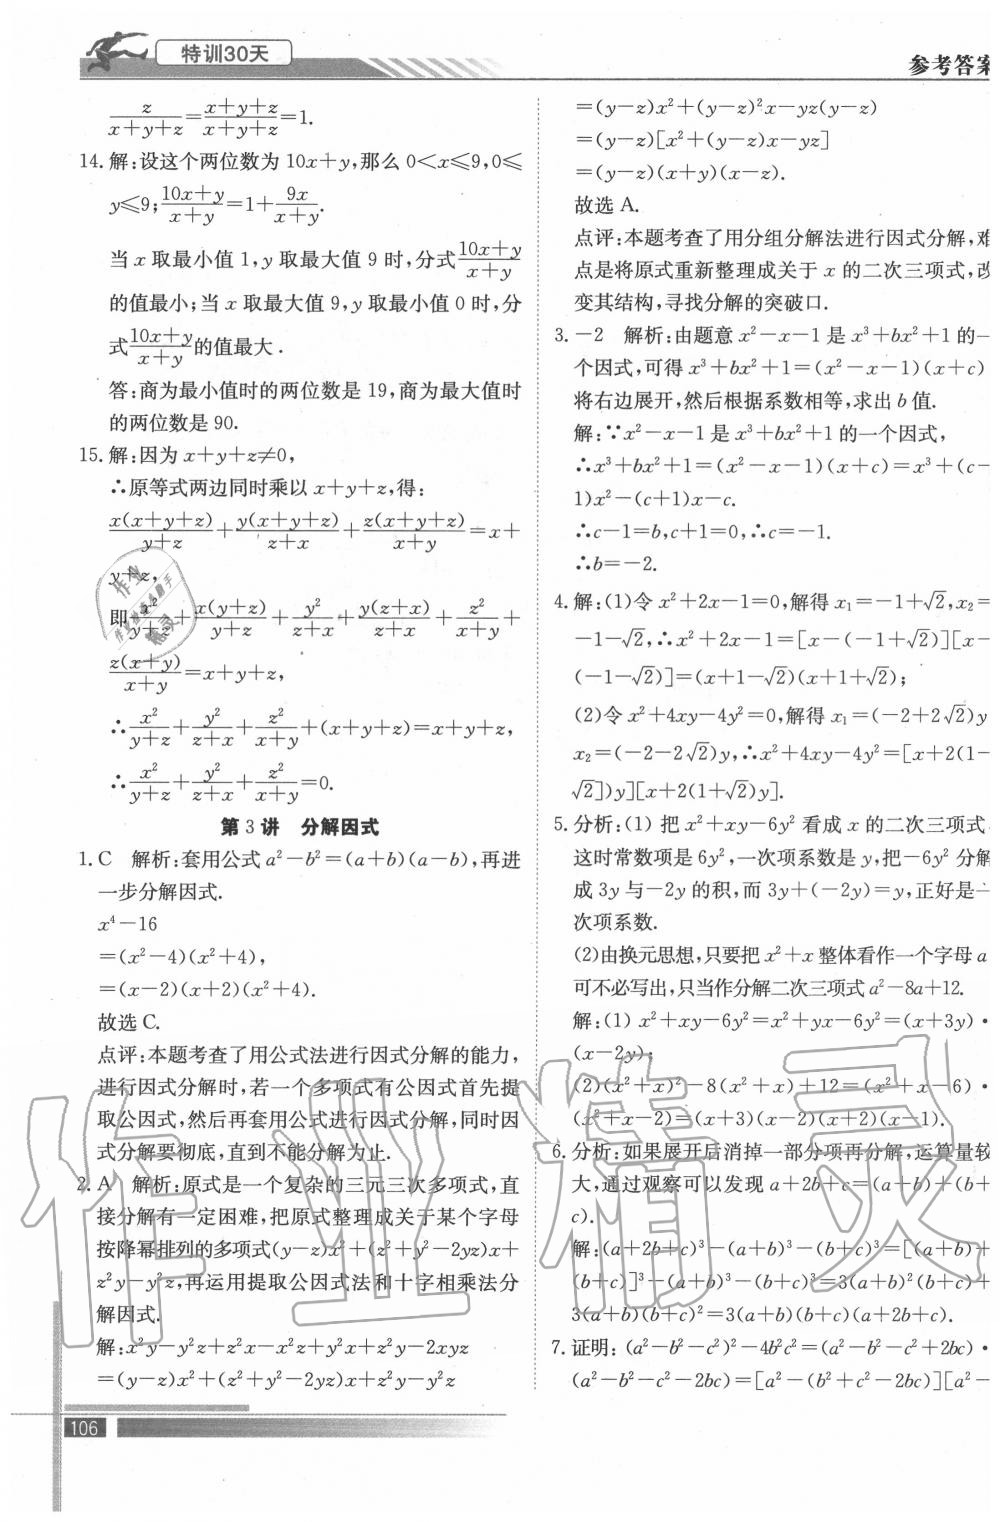 特训30天
参考答案
z/(x+y+z)=(x+y+z)/(x+y+z)=1.
14.解:设这个两位数为 10x+y,那么 0<x≤9,0≤
y≤9;(10x+y)/(x+y)=1+9x/(x+y).
当 x 取最小值 1,y 取最大值 9 时,分式(10x+y)/(x+y)
的值最小;当 x 取最大值 9,y 取最小值 0 时,分
式(10x+y)/(x+y)的值最大.
答:商为最小值时的两位数是 19,商为最大值时
的两位数是 90.
15.解:因为 x+y+z≠0,
∴原等式两边同时乘以 x+y+z,得:
x(x+y+z)/(y+z)+y(x+y+z)/(z+x)+z(x+y+z)/(x+y)=x+
y+z,
即 x²/(y+z)+x(y+z)/(y+z)+y²/(z+x)+y(z+x)/(z+x)+z²/(x+y)+
z(x+y)/(x+y)=x+y+z,
∴x²/(y+z)+y²/(z+x)+z²/(x+y)+(x+y+z)=x+y+z,
∴x²/(y+z)+y²/(z+x)+z²/(x+y)=0.
第 3 讲 分解因式
1.C 解析:套用公式 a²-b²=(a+b)(a-b),再进
一步分解因式.
x⁴-16
=(x²-4)(x²+4),
=(x-2)(x+2)(x²+4).
故选 C.
点评:本题考查了用公式法进行因式分解的能力,
进行因式分解时,若一个多项式有公因式首先提
取公因式,然后再套用公式进行因式分解,同时因
式分解要彻底,直到不能分解为止.
2.A 解析:原式是一个复杂的三元三次多项式,直
接分解有一定困难,把原式整理成关于某个字母
按降幂排列的多项式(y-z)x²+(z²+y²-2yz)x+
z²y-y²z,再运用提取公因式法和十字相乘法分
解因式.
解:x²y-y²z+z²x-x²z+y²x+z²y-2xyz
=(y-z)x²+(z²+y²-2yz)x+z²y-y²z
=(y-z)x²+(y-z)²x-yz(y-z)
=(y-z)[x²+(y-z)x-yz]
=(y-z)(x+y)(x-z).
故选 A.
点评:本题考查了用分组分解法进行因式分解,难
点是将原式重新整理成关于 x 的二次三项式,改
变其结构,寻找分解的突破口.
3.-2 解析:由题意 x²-x-1 是 x³+bx²+1 的一
个因式,可得 x³+bx²+1=(x²-x-1)(x+c)
将右边展开,然后根据系数相等,求出 b 值.
解:∵x²-x-1 是 x³+bx²+1 的一个因式,
∴x³+bx²+1=(x²-x-1)(x+c)=x³+(c-
1)x²-(c+1)x-c.
∴c-1=b,c+1=0,∴c=-1.
∴b=-2.
4.解:(1)令 x²+2x-1=0,解得 x₁=-1+√2,x₂=
-1-√2,∴x²+2x-1=[x-(-1+√2)][x-
(-1-√2)]=(x+1-√2)(x+1+√2);
(2)令 x²+4xy-4y²=0,解得 x₁=(-2+2√2)y
x₂=(-2-2√2)y,∴x²+4xy-4y²=[x+2(1-
√2])y][x+2(1+√2)y].
5.分析:(1) 把 x²+xy-6y² 看成 x 的二次三项式
这时常数项是 6y²,一次项系数是 y,把-6y² 分解
成 3y 与-2y 的积,而 3y+(-2y)=y,正好是一
次项系数.
(2)由换元思想,只要把 x²+x 整体看作一个字母 a
可不必写出,只当作分解二次三项式 a²-8a+12.
解:(1) x²+xy-6y²=x²+yx-6y²=(x+3y)·
(x-2y);
(2)(x²+x)²-8(x²+x)+12=(x²+x-6)·
(x²+x-2)=(x+3)(x-2)(x+2)(x-1).
6.分析:如果展开后消掉一部分项再分解,运算量较
大,通过观察可以发现 a+2b+c=(a+b)+(b+
c).
解:(a+2b+c)³-(a+b)³-(b+c)³=[(a+b)+
(b+c)]³-(a+b)³-(b+c)³=3(a+b)²(b+c)+
3(a+b)(b+c)²=3(a+b)(b+c)(a+2b+c).
7.证明:(a²-b²-c²)²-4b²c²=(a²-b²-c²+2bc)·
(a²-b²-c²-2bc)=[a²-(b²+c²-2bc)][a²-
106
作业精灵